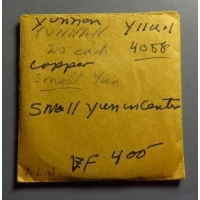 Yunnan Y11u.1
YUNNAN 4058
20 cash
copper
Small Yun
Small Yun in Center
VF 400-